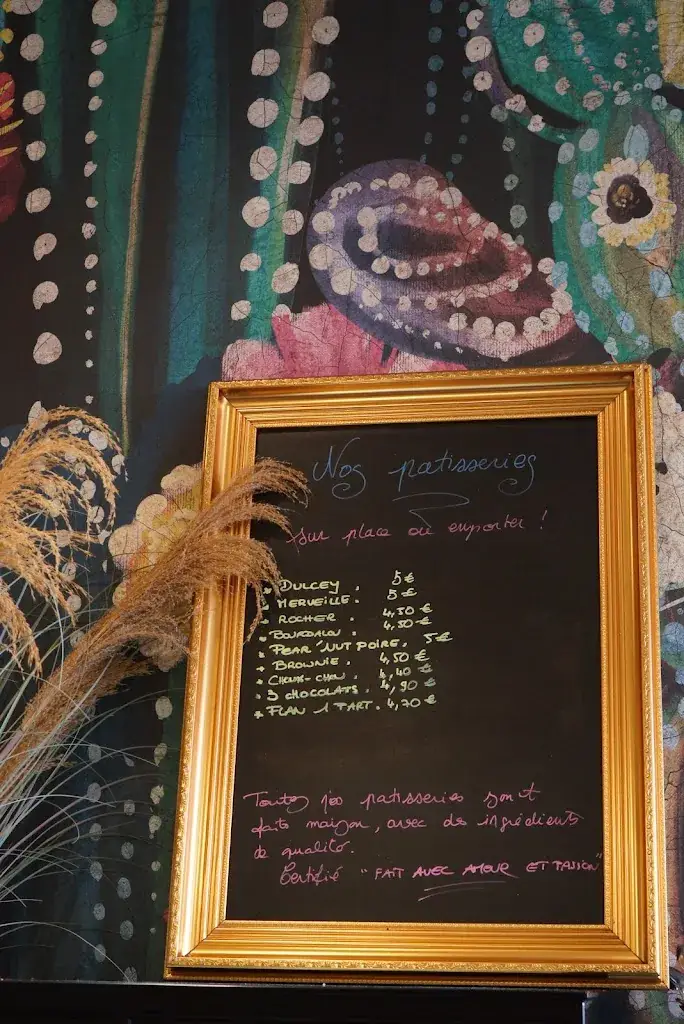 Nos patisseries
sur place ou emporter !
+ DULCEY . 5 €
+ MERVEILLE . 5 €
+ ROCHER . 4,50 €
+ BOURDALOU . 4,50 €
+ PEAR'NUT POIRE. 5 €
+ BROWNIE . 4,50 €
+ CHOUX-CHOU . 4,40 €
+ 3 CHOCOLATS . 4,90 €
+ FLAN 1 PART. 4,70 €
Toutes nos patisseries sont
faits maison, avec des ingrédients
de qualité.
Certifié "FAIT AVEC AMOUR ET PASSION"